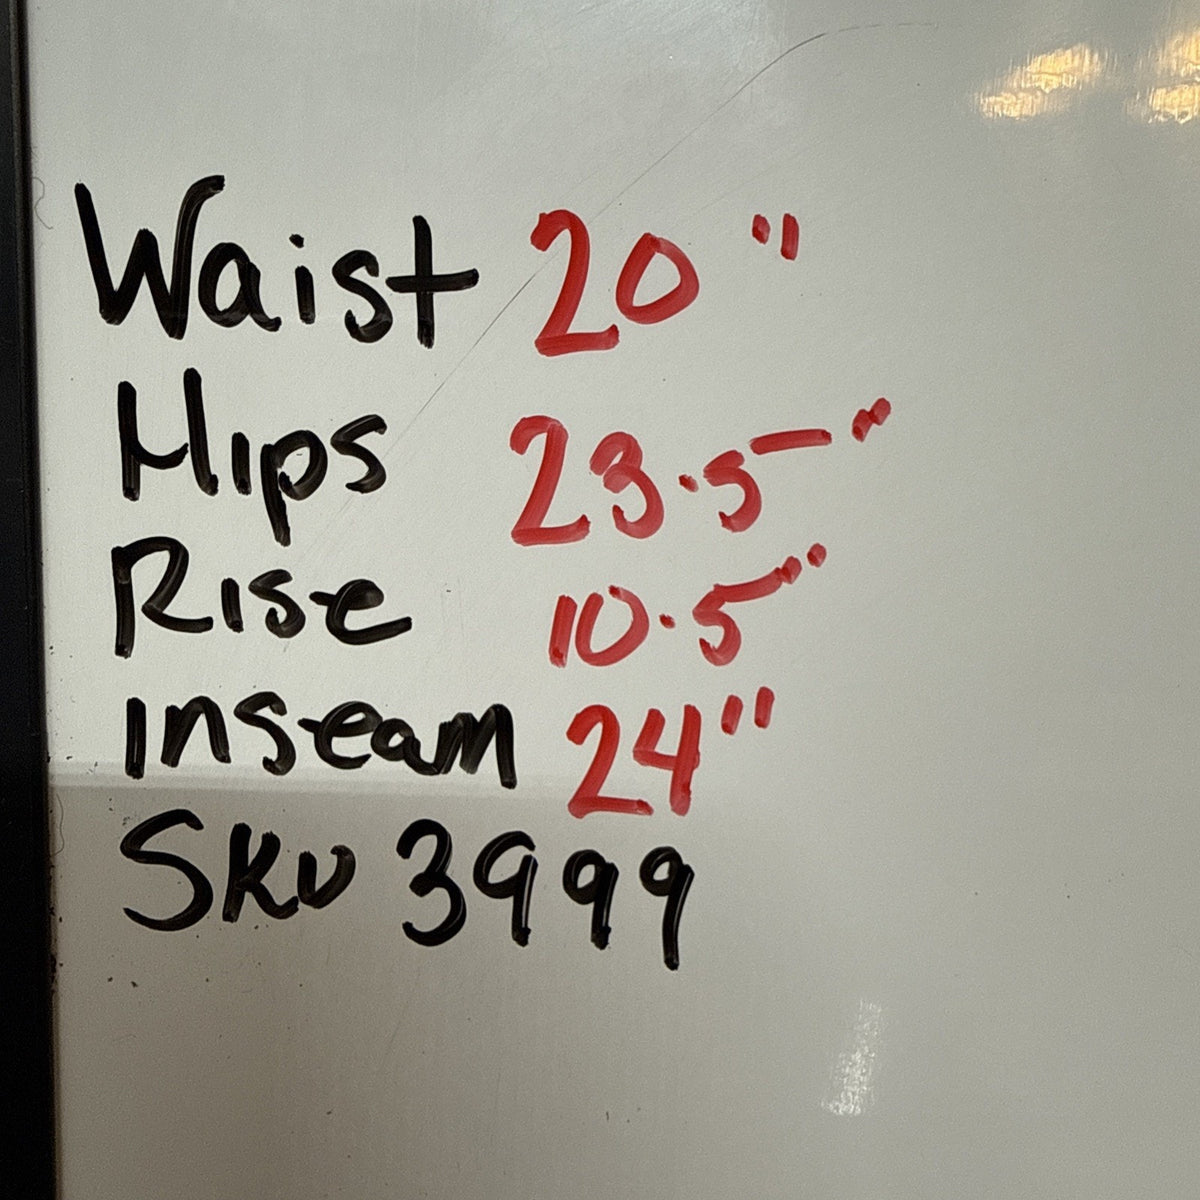 Waist 20"
Hips 23.5"
Rise 10.5"
Inseam 24"
SKU 3999